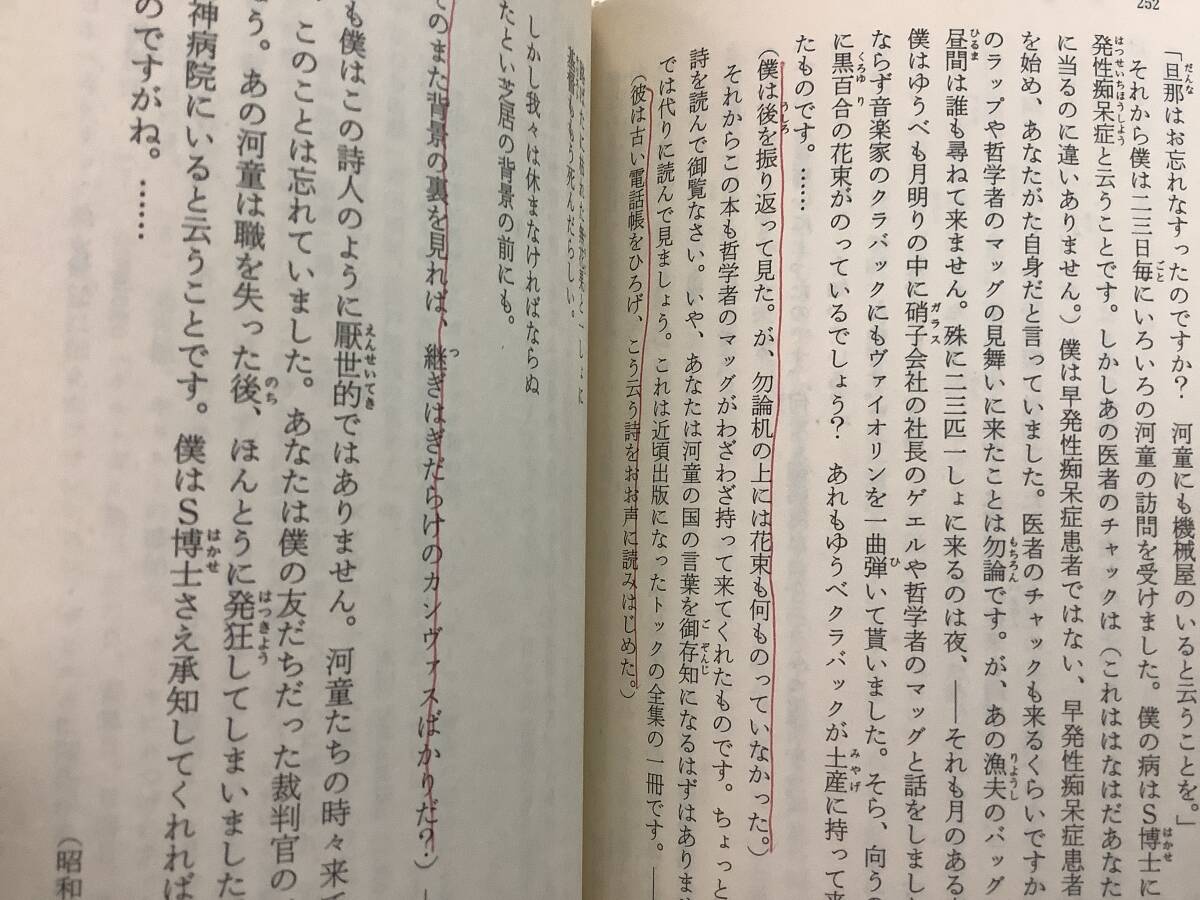 252
「旦那はお忘れなすったのですか? 河童にも機械屋のいると云うことを。」
それから僕は二三日毎にいろいろの河童の訪問を受けました。僕の病はS博士に
発性痴呆症と云うことです。しかしあの医者のチャックは(これははなはだあなた
に当るのに違いありません。)僕は早発性痴呆症患者ではない、早発性痴呆症患者
を始め、あなたがた自身だと言っていました。医者のチャックも来るくらいですか
のラップや哲学者のマッグの見舞いに来たことは勿論です。が、あの漁夫のバッグ
昼間は誰も尋ねて来ません。殊に二三匹一しょに来るのは夜、――それも月のある
僕はゆうべも月明りの中に硝子会社の社長のゲエルや哲学者のマッグと話をしまし
ならず音楽家のクラバックにもヴァイオリンを一曲弾いて貰いました。そら、向うの
に黒百合の花束がのっているでしょう? あれもゆうべクラバックが土産に持って来
たものです。……
(僕は後を振り返って見た。が、勿論机の上には花束も何ものっていなかった。)
それからこの本も哲学者のマッグがわざわざ持って来てくれたものです。ちょっと
詩を読んで御覧なさい。いや、あなたは河童の国の言葉を御存知になるはずはありま
では代りに読んで見ましょう。これは近頃出版になったトックの全集の一冊です。―
(彼は古い電話帳をひろげ、こう云う詩をおお声に読みはじめた。)
基督ももう死んだらしい。
しかし我々は休まなければならぬ
たとい芝居の背景の前にも。
てのまた背景の裏を見れば、継ぎはぎだらけのカンヴァスばかりだ?)―
も僕はこの詩人のように厭世的ではありません。河童たちの時々来て
このことは忘れていました。あなたは僕の友だちだった裁判官の
う。あの河童は職を失った後、ほんとうに発狂してしまいました
神病院にいると云うことです。僕はS博士さえ承知してくれれば
のですがね。……
(昭和